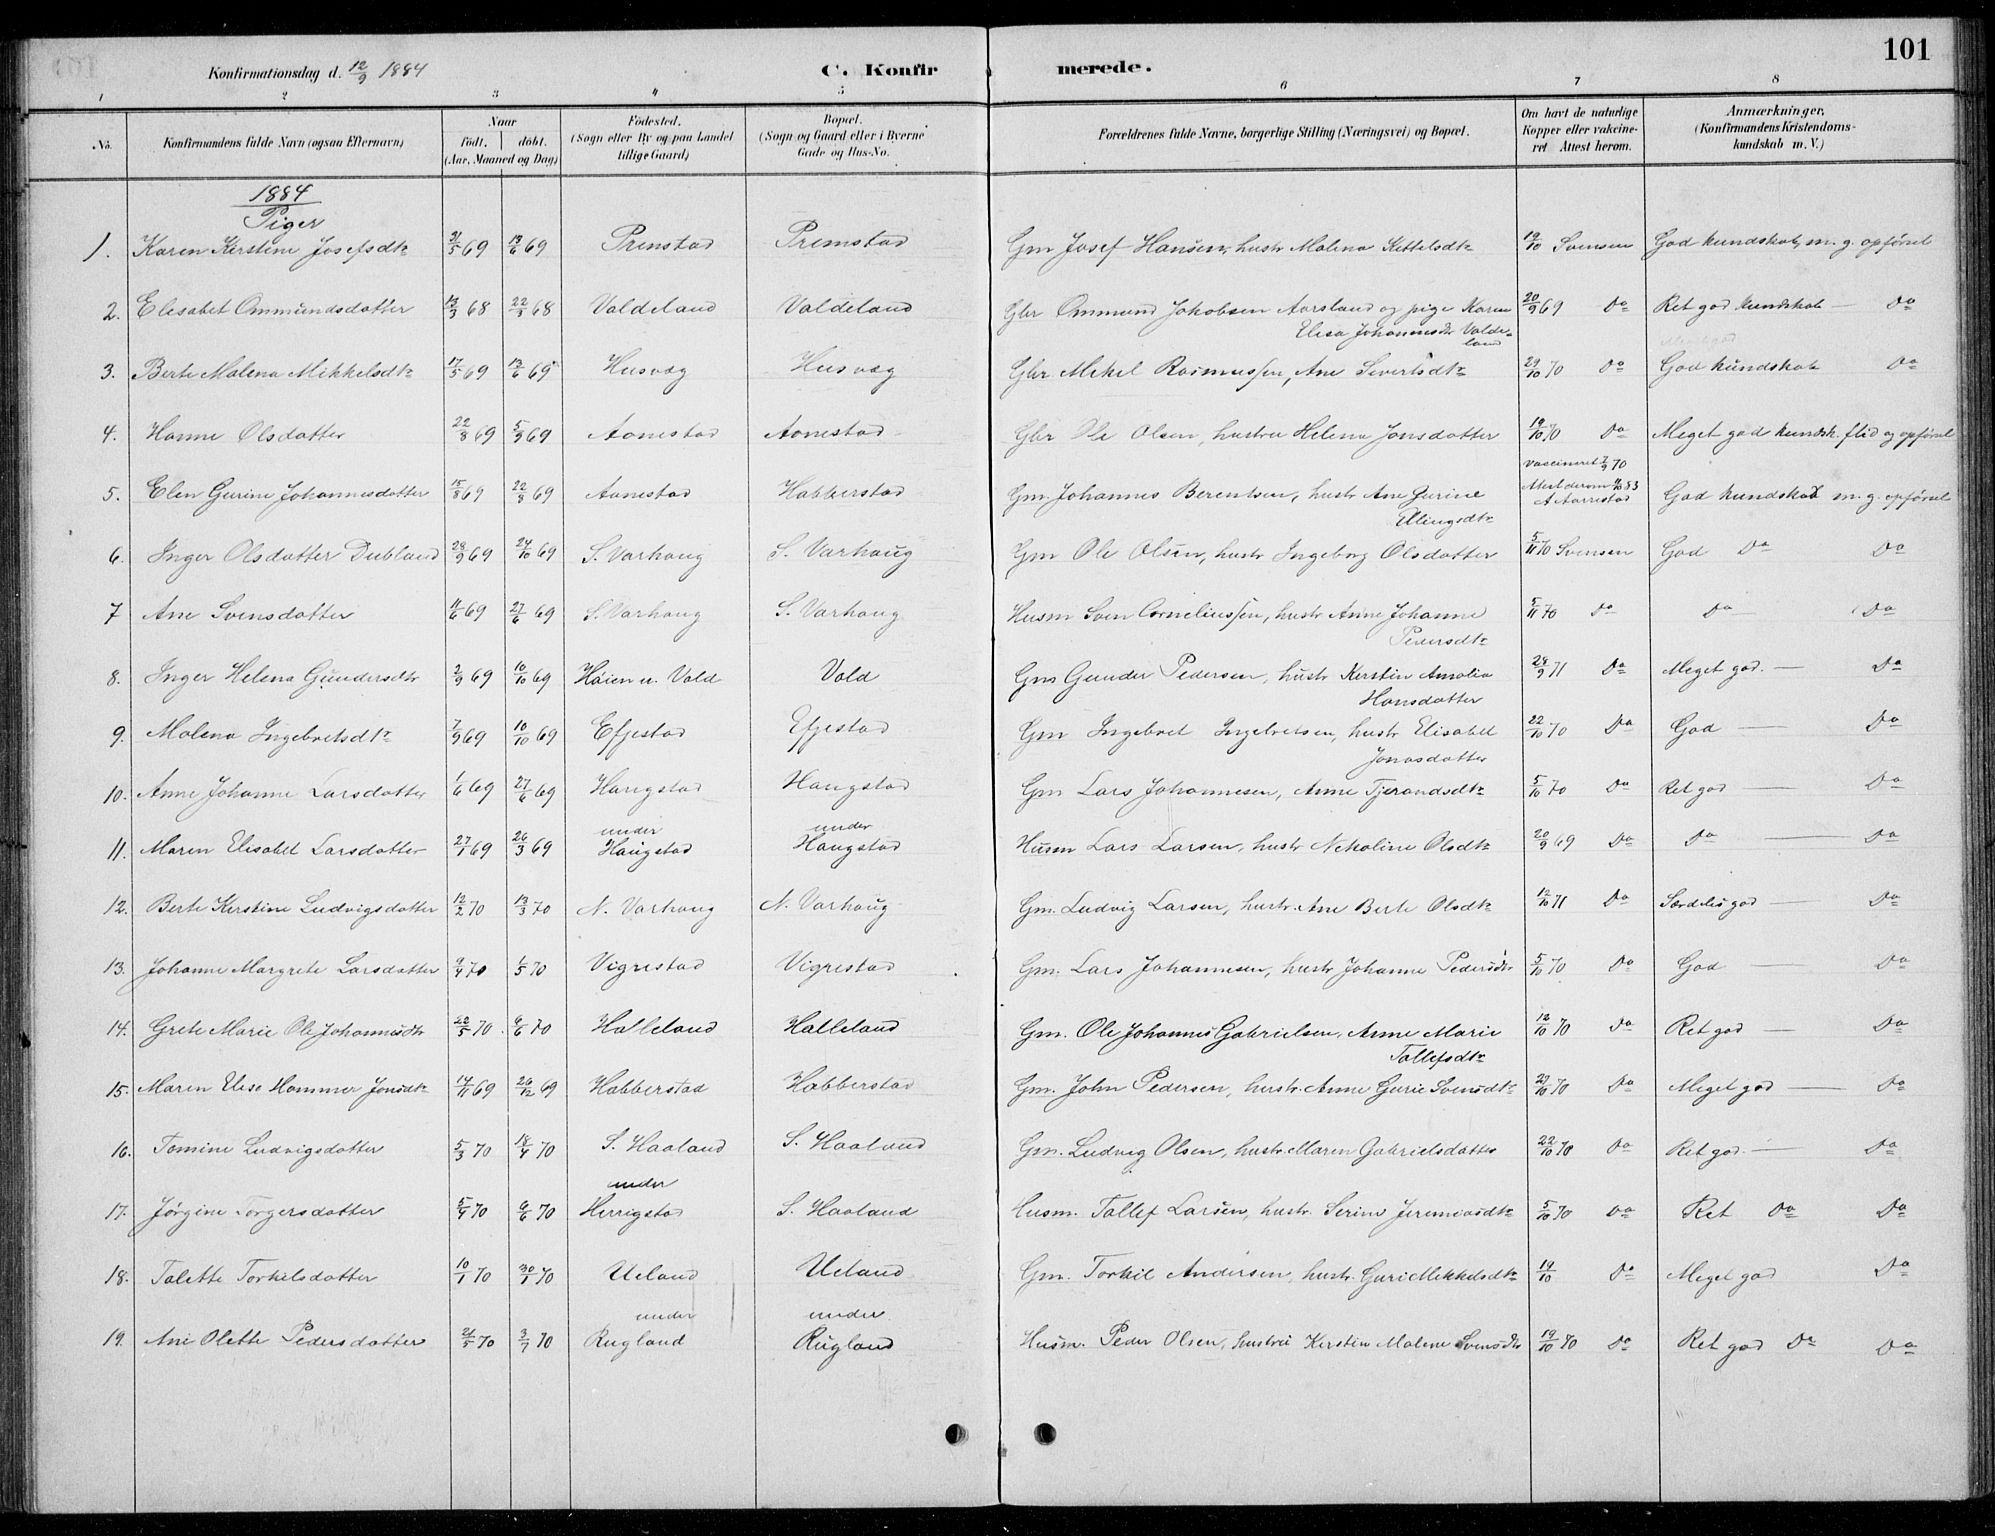 101
Konfirmationsdag d. 12/9 1884
C. Konfirmerede.
1 2 3 4 5 6 7 8
No. Konfirmandens fulde Navn (ogsaa Efternavn) Naar født. døbt. (Aar, Maaned og Dag) Fødested. (Sogn eller By og paa Landet tillige Gaard) Bopæl. (Sogn og Gaard eller i Byerne Gade og Hus-No. Forældrenes fulde Navne, borgerlige Stilling (Næringsvei) og Bopæl. Om havt de naturlige Kopper eller vakcineret. Attest herom. Anmærkninger. (Konfirmandens Kristendomskundskab m. V.)
1884
Piger
1. Karen Kirstine Josefsdtr 31/5 69 13/6 69 Primstad Primstad Gm Josef Hansen, hustr Malena Kittelsdtr 19/10 Svensen God kundskab, m. g. opførsel
2. Elisabet Ommundsdatter 13/3 68 22/3 68 Valdeland Valdeland Gbr Ommund Jakobsen Aarsland og pige Karen 20/9 69 Do Ret god kundskab — Do
Elisa Johannesdtr Valdeland
3. Berte Malena Mikkelsdtr 17/5 69 13/6 69 Husvæg Husvæg Gbr Mikel Rasmussen, Ane Sivertsdtr 29/10 70 Do God kundskab Do
4. Hanne Olsdatter 22/8 69 5/9 69 Aanestad Aanestad Gbr Ole Olsen, hustru Helena Jonsdatter 19/10 70 Do Meget god kundsk. flid og opførsel
5. Elen Gurine Johannesdatter 15/8 69 22/8 69 Aanestad Habberstad Gm. Johannes Berentsen, hustr Ane Gurine Vaccineret 7/9 70 God kundskab m. g. opførsel
Ellingsdtr Attest derom 83 A Aarrestad
6. Inger Olsdatter Dubland 28/9 69 24/10 69 S. Varhaug S. Varhaug Gm Ole Olsen, hustr Ingeborg Olsdatter 5/11 70 Svensen God Do Do
7 Ane Svensdatter 11/6 69 27/6 69 S. Varhaug S. Varhaug Husm Sven Corneliussen, hustr Anne Johanne 5/11 70 Do Do Do
Pedersdtr
8. Inger Helena Gundersdtr 2/9 69 10/10 69 Høien u. Vold Vold Gm Gunder Pedersen, hustr Kerstin Amalia 24/9 71 Do Meget god. — Do
Hansdatter
9. Malena Ingebretsdtr 7/9 69 10/10 69 Efjestad Efjestad Gm Ingebret Ingebretsen, hustr Elisabet 22/10 70 Do God — Do
Jonasdatter
10. Anne Johanne Larsdatter 1/6 69 27/6 69 Haugstad Haugstad Gm Lars Johannesen, Anne Tjerandsdtr 5/10 70 Do Ret god — Do
11. Maren Elisabet Larsdatter 27/1 69 26/3 69 under Haugstad under Haugstad Husm Lars Larsen, hustr Nekoline Olsdtr 20/9 69 Do Do — Do
12. Berte Kerstine Ludvigsdatter 12/2 70 13/3 70 N. Varhaug N. Varhaug Gm. Ludvig Larsen, hustr. Ane Berte Olsdtr 12/10 71 Do Særdeles god — Do
13. Johanne Margrete Larsdatter 9/4 70 1/5 70 Vigrestad Vigrestad Gm. Lars Johannesen, hustr Johanne Pedersdtr 5/10 70 Do God — Do
14. Grete Marie Ole Johannesdtr 22/5 70 6/6 70 Halleland Halleland Gm. Ole Johannes Gabrielsen, Anne Marie 12/10 70 Do Ret god — Do
Tallefsdtr
15. Maren Elise Hommer Jonsdtr 14/11 69 26/12 69 Habberstad Habberstad Gm. John Pedersen, hustr. Anne Gurie Svensdtr 29/10 70 Do Meget god — Do
16. Tomine Ludvigsdatter 5/3 70 18/4 70 S. Haaland S. Haaland Gm. Ludvig Olsen, hustr. Maren Gabrielsdatter 22/10 70 Do Ret god. — Do
17. Jørgine Torgersdatter 5/4 70 6/6 70 under Herrigstad S. Haaland Husm. Tallef Larsen, hustr. Serine Jeremiasdtr 5/10 70 Do Ret Do Do
18. Talette Torkilsdatter 10/1 70 30/1 70 Ueland Ueland Gm. Torkil Andersen, hustr. Guri Mikkelsdtr 19/10 Do Meget god Do
19. Ane Olette Pedersdatter 21/5 70 3/7 70 under Rugland under Rugland Husm. Peder Olsen, hustru Kerstin Malene Svensdtr 19/10 70 Do Ret god Do Do